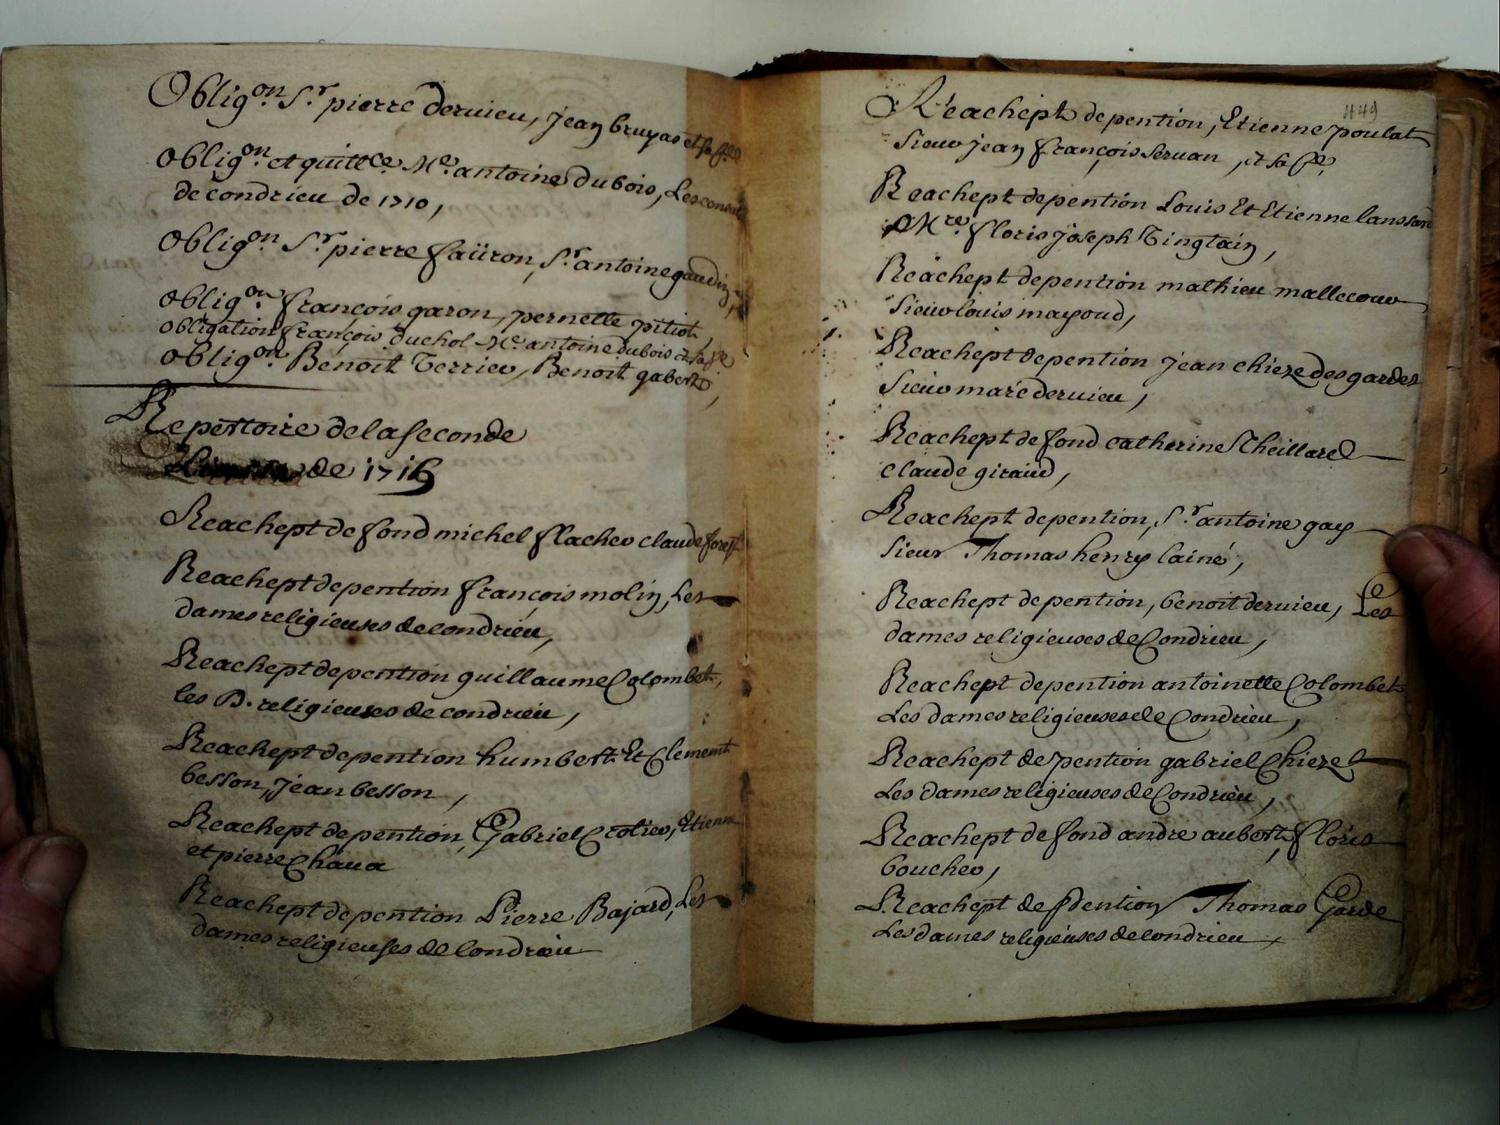 Oblig.on S.r pierre dervieu, jean bruyas et sa fe
Oblig.on et quittce Me. antoine dubois, Les consuls
de condrieu de 1710,
Oblig.on S.r pierre faüron, S.r antoine gaudin,
Oblig.on françois garon, pernette pitiot,
obligation françois duchol Me. antoine dubois et sa fe
Oblig.on Benoit Terrieu, Benoit gabert,
Repertoire de la seconde
de 1716
Reachept de fond michel flacheo claude forest
Reachept de pention françois molin, Les
dames religieuses de Condrieu,
Reachept de pention guillaume Colombet,
les D. religieuses de condrieu,
Reachept de pention humbert Et Clement
besson, Jean besson,
Reachept de pention, Gabriel Crotieo, Etienne
et pierre Chaua
Reachept de pention Pierre Bajard, Les
dames religieuses de Condrieu
449
Reachept de pention, Etienne poulat
Sieuo jean françois Seruan, et sa fe,
Reachept de pention Louis Et Etienne lanssard
Mre. floris joseph Tinglain,
Reachept de pention mathieu mallecouo
Sieuo louis mayoud,
Reachept de pention jean chieze des gardes
Sieuo marc dervieu,
Reachept de fond catherine Theillard
claude giraud,
Reachept de pention, S.r antoine gay
Sieur Thomas henry lainé,
Reachept de pention, benoit dervieu, Les
dames religieuses de Condrieu,
Reachept de pention antoinette Colombet
Les dames religieuses de Condrieu,
Reachept de pention gabriel Chieze
Les dames religieuses de Condrieu,
Reachept de fond andre aubert, floris
boucheo,
Reachept de Pention Thomas Garde
Les dames religieuses de Condrieu